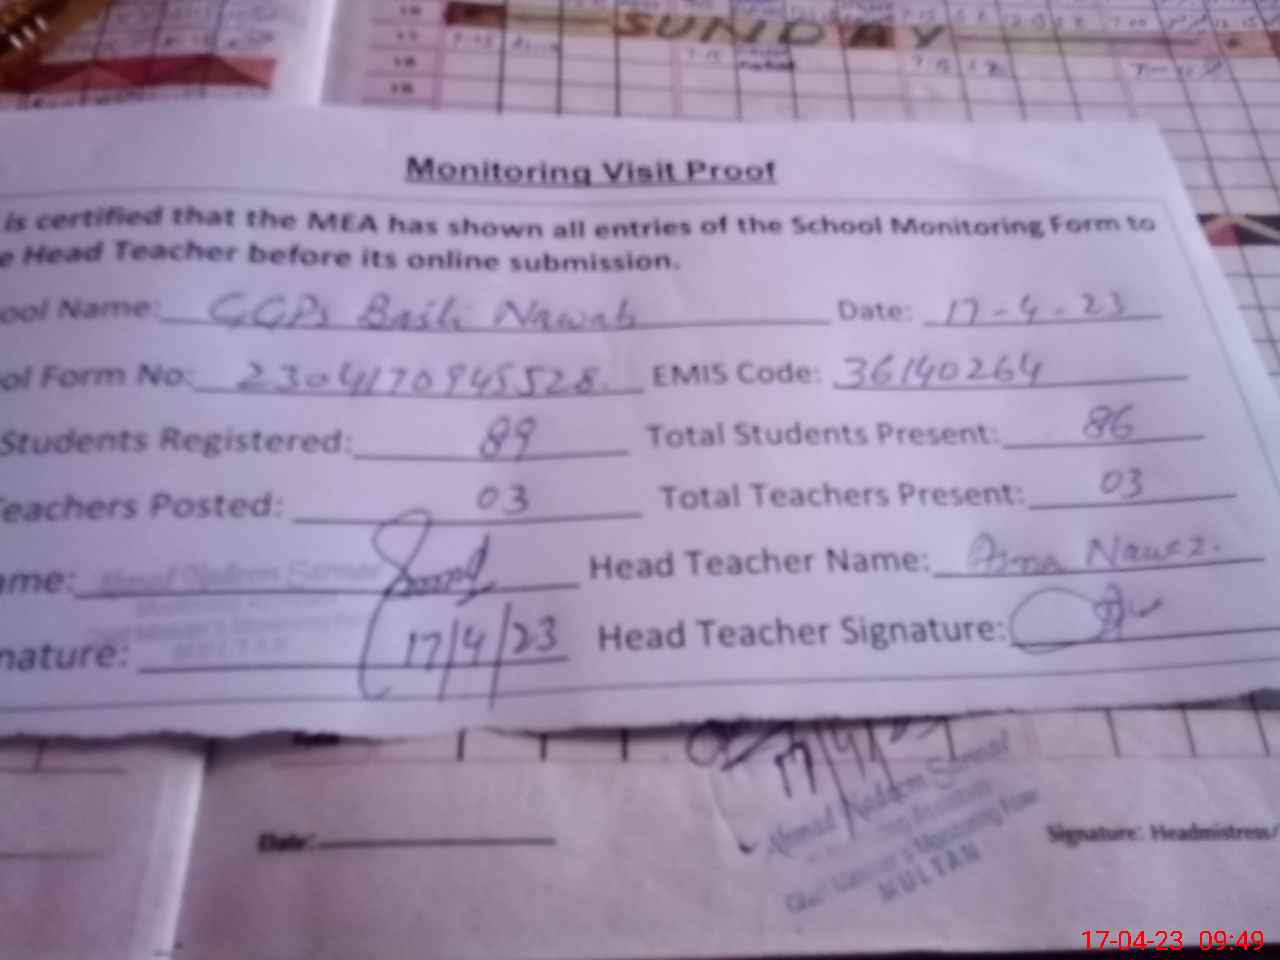 SUNDAY
Monitoring Visit Proof
is certified that the MEA has shown all entries of the School Monitoring Form to
e Head Teacher before its online submission.
ool Name: GGPS Basti Nawab Date: 17-4-23
ol Form No: 2304170945528 EMIS Code: 36140264
Students Registered: 89 Total Students Present: 86
Teachers Posted: 03 Total Teachers Present: 03
ame: Ahmad Nadeem Sarwar Head Teacher Name: Nawaz.
MULTAN
nature: 17/4/23 Head Teacher Signature:
17/4/23
Ahmad Nadeem Sarwar
Chief Minister's Monitoring Force
MULTAN
Date: Signature: Headmistress/
17-04-23 09:49